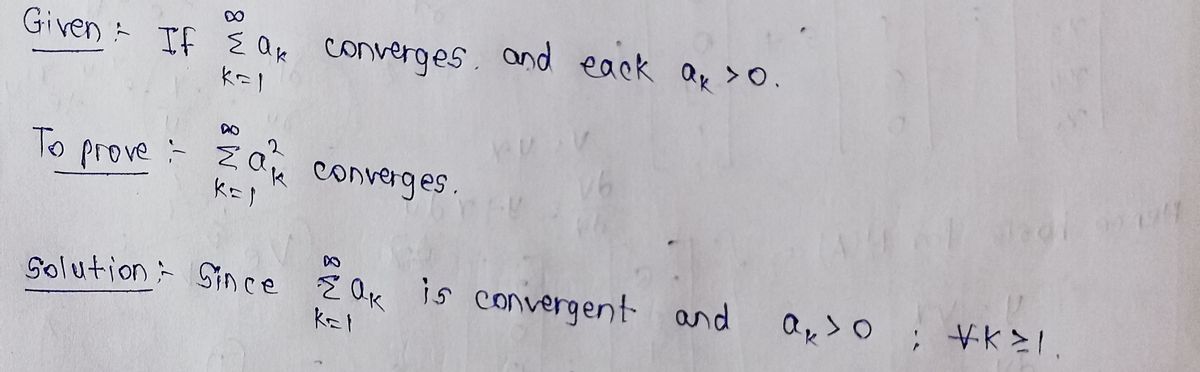 Given :- If ∞Σk=1 ak converges. and eack ak > 0.
To prove :- ∞Σk=1 a²k converges.
Solution :- Since ∞Σk=1 ak is convergent and ak > 0 ; ∀k ≥ 1.